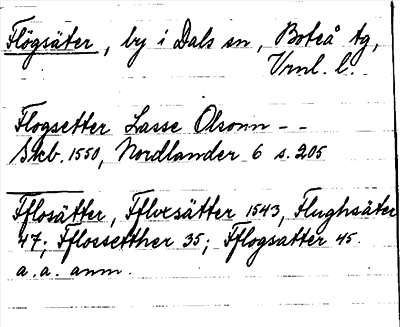 Flögsäter, by i Dals sn, Boteå tg,
Vrnl. l.
Flogsetter Lasse Olsonn - -
Skb. 1550, Nordlander 6 s. 205
Fflosätter, Fflversätter 1543, Flughsäter
47; Fflossetther 35; Fflogsatter 45.
a. a. anm.